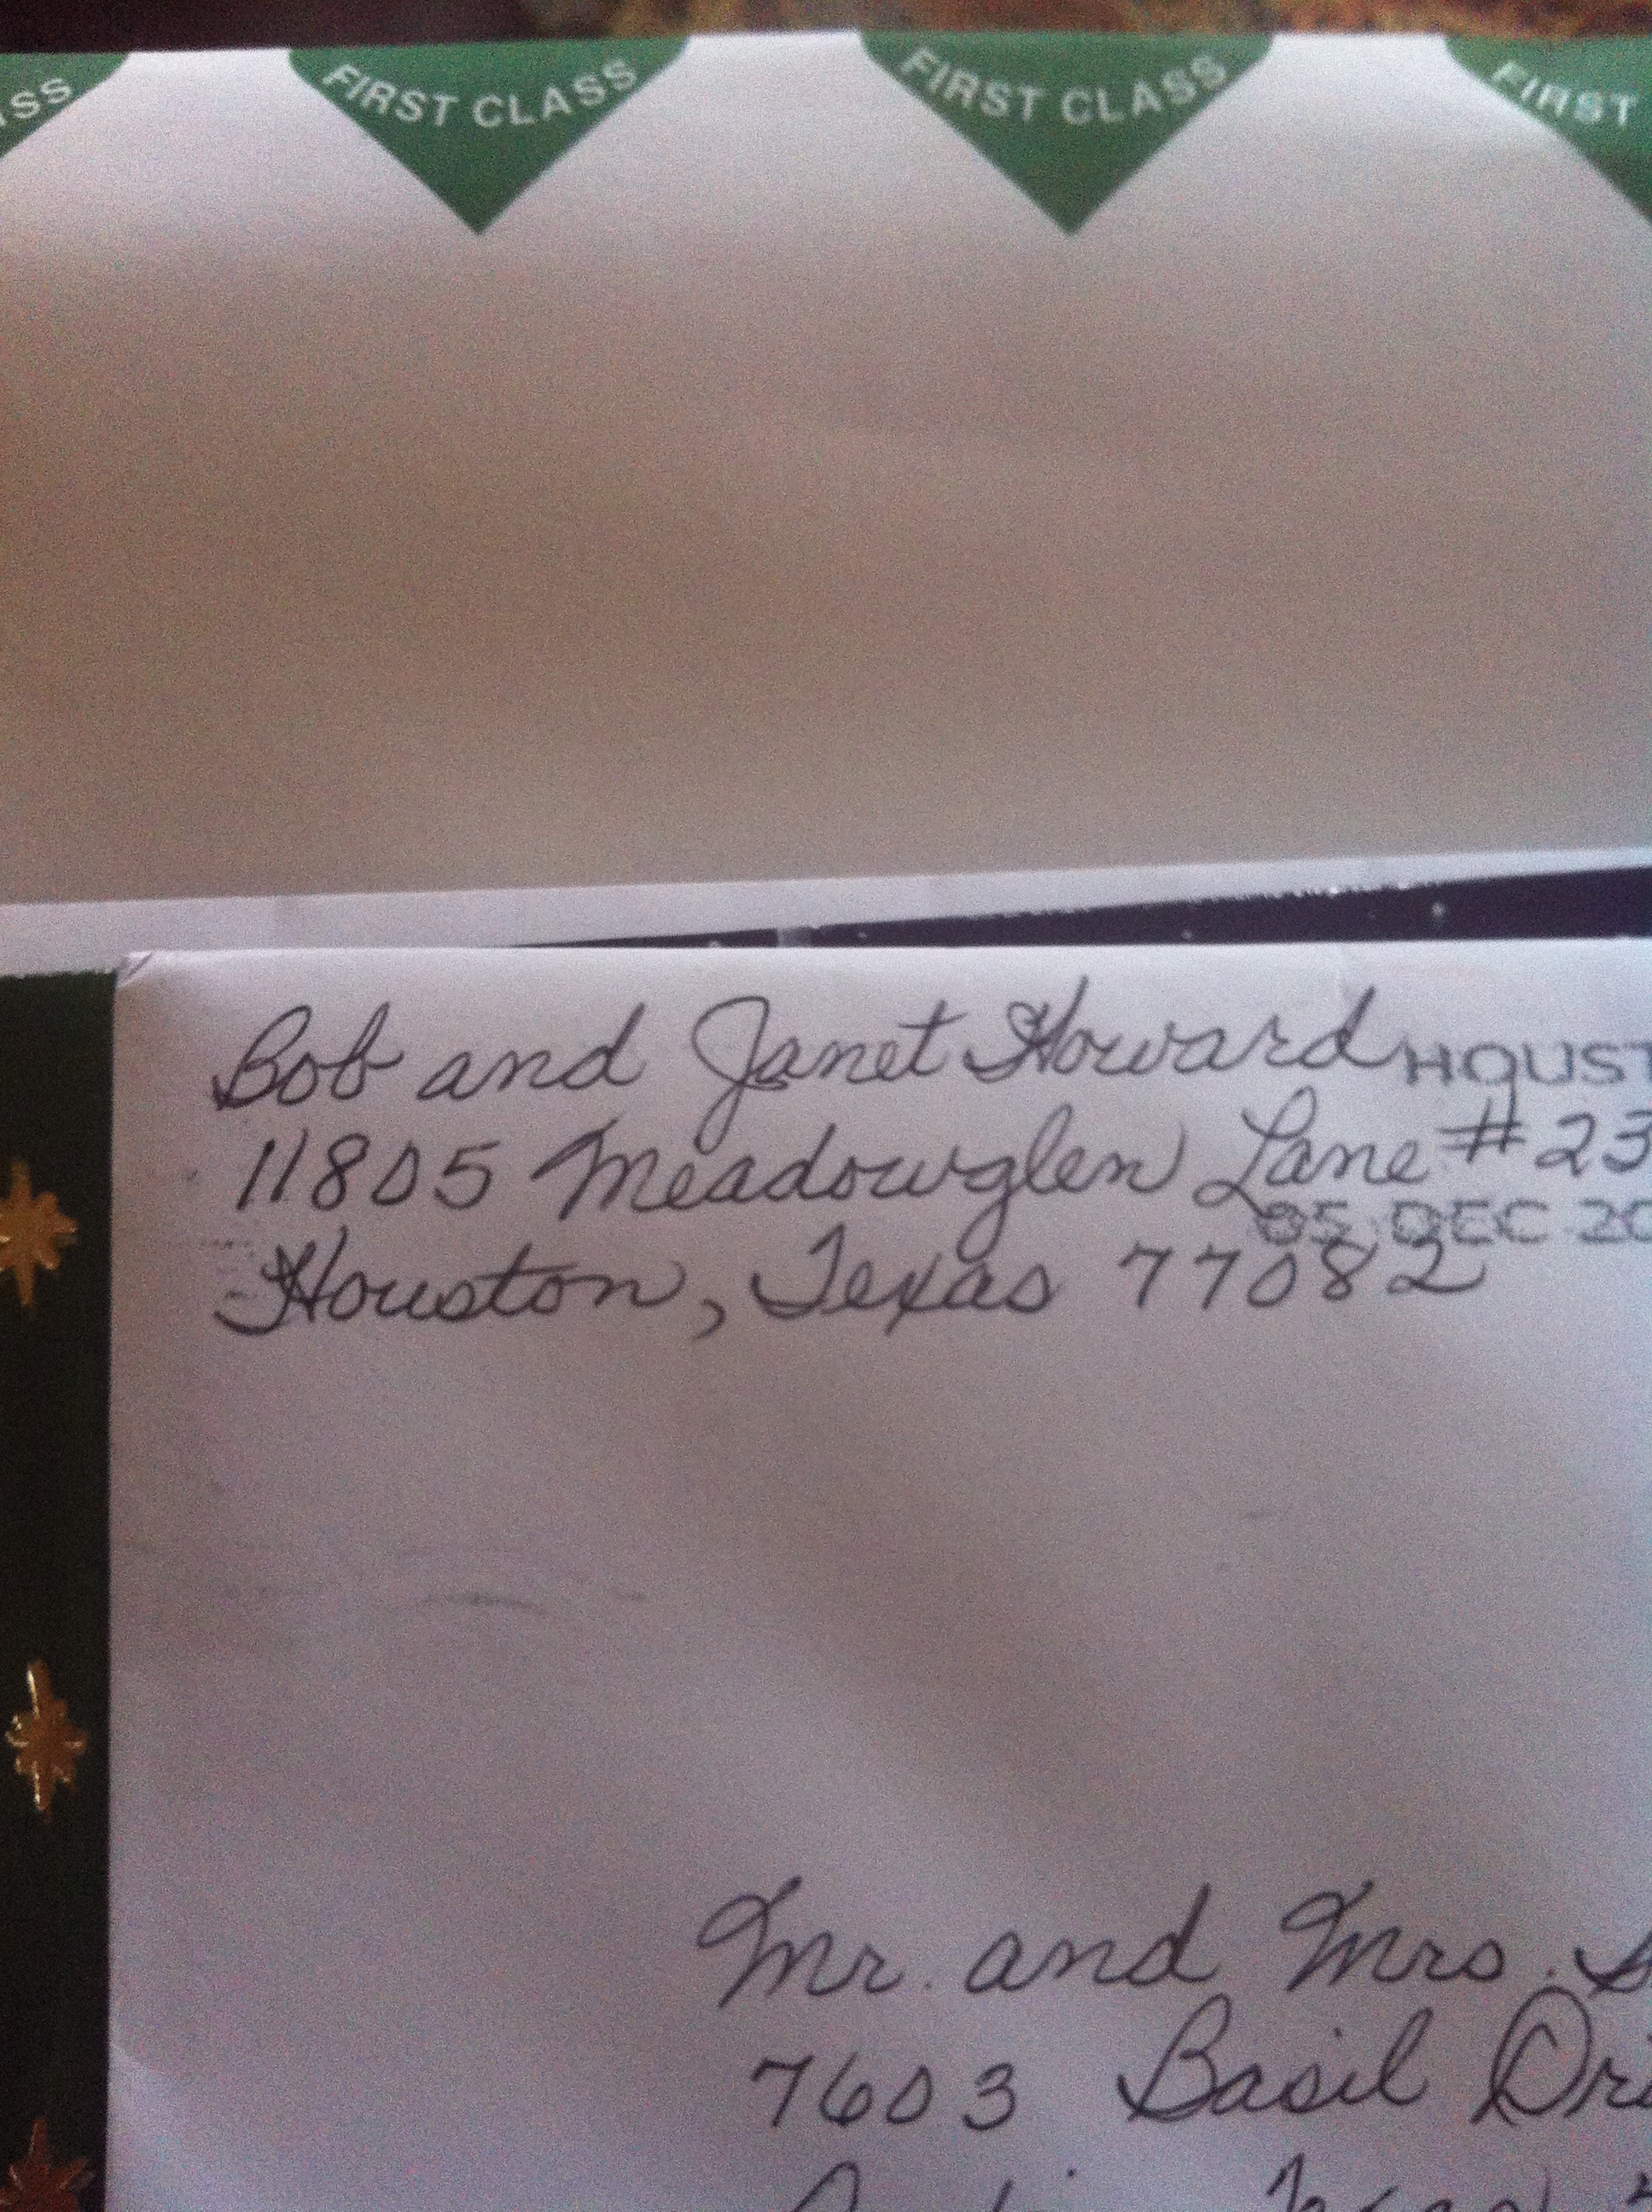 FIRST CLASS FIRST CLASS FIRST
Bob and Janet Howard
HOUST
11805 Meadowglen Lane #23
05 DEC 20
Houston, Texas 77082
Mr. and Mrs.
7603 Basil